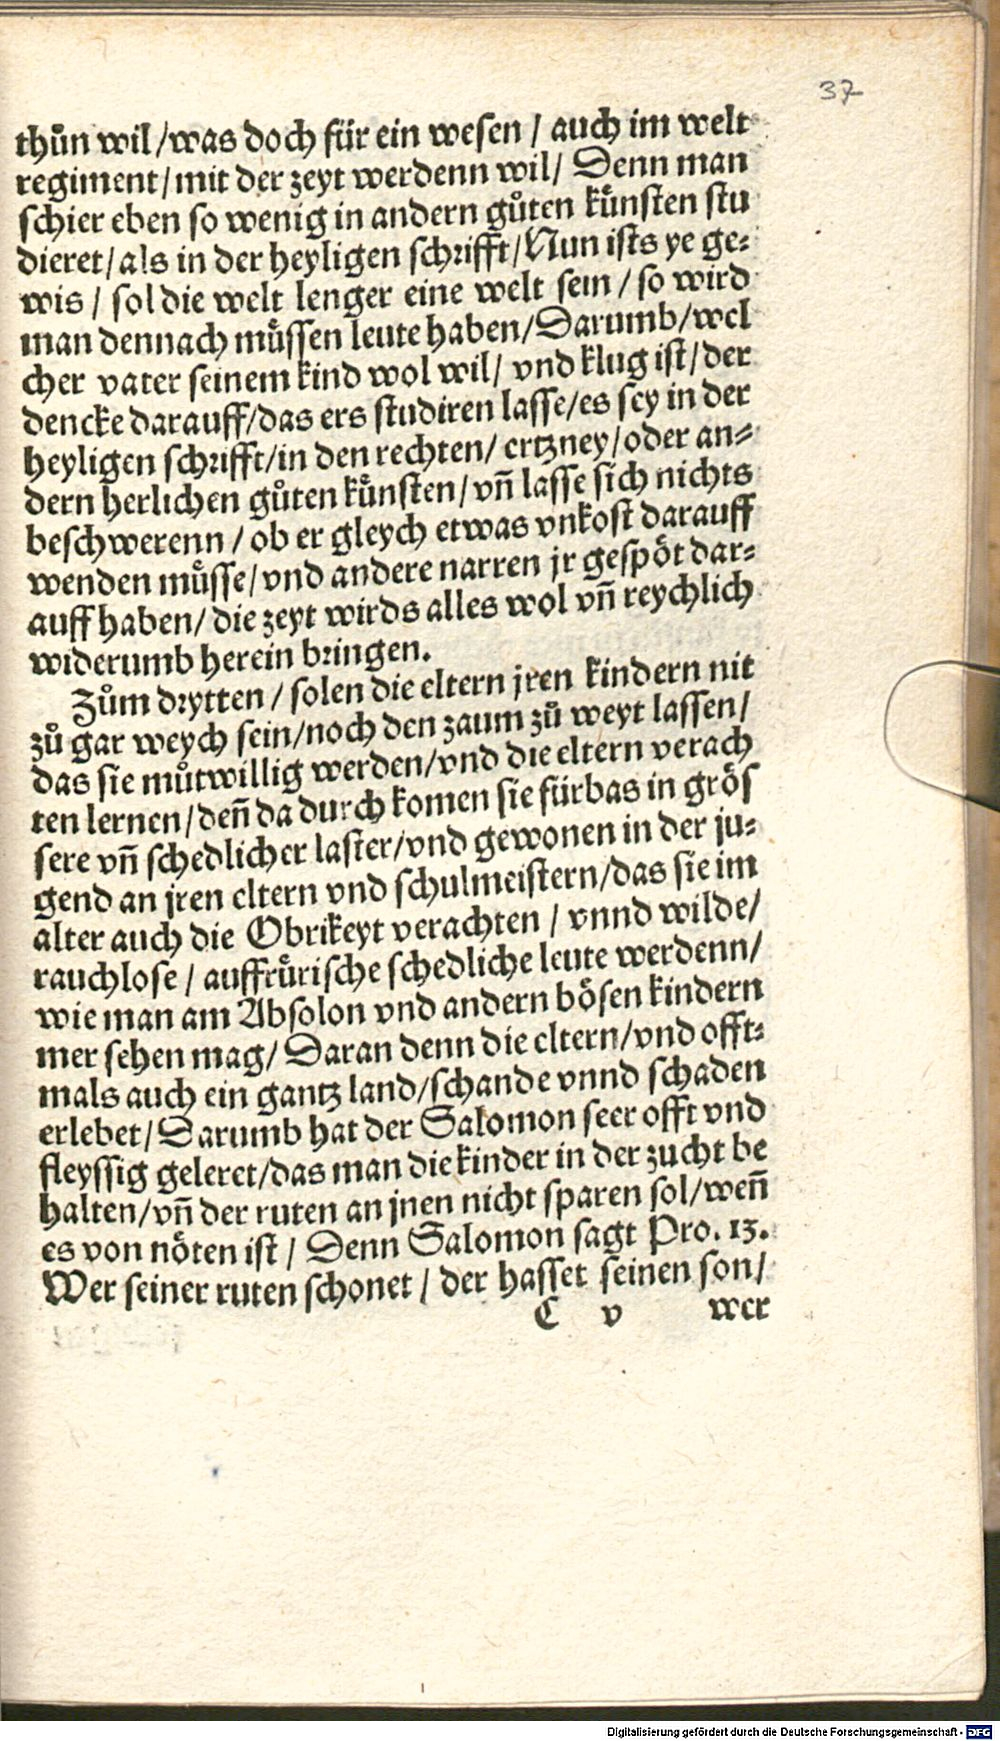 37
thůn wil/was doch für ein wesen / auch im welt
regiment/mit der zeyt werdenn wil/ Denn man
schier eben so wenig in andern gůten kůnsten stu
dieret/als in der heyligen schrifft/Nun ists ye ge⸗
wis / sol die welt lenger eine welt sein / so wird
man dennach můssen leute haben/Darumb/wel
cher vater seinem kind wol wil/ vnd klug ist/der
dencke darauff/das ers studiren lasse/es sey in der
heyligen schrifft/in den rechten/ ertzney/oder an⸗
dern herlichen gůten kůnsten/vn̄ lasse sich nichts
beschwerenn / ob er gleych etwas vnkost darauff
wenden můsse/vnd andere narren jr gespöt dar⸗
auff haben/die zeyt wirds alles wol vn̄ reychlich
widerumb herein bringen.
Zům drytten / solen die eltern jren kindern nit
zů gar weych sein/noch den zaum zů weyt lassen/
das sie můtwillig werden/vnd die eltern verach
ten lernen/den̄ da durch komen sie fürbas in grös
sere vn̄ schedlicher laster/vnd gewonen in der ju⸗
gend an jren eltern vnd schulmeistern/das sie im
alter auch die Obrikeyt verachten / vnnd wilde/
rauchlose / auffrůrische schedliche leute werdenn/
wie man am Absolon vnd andern bösen kindern
mer sehen mag/ Daran denn die eltern/vnd offt⸗
mals auch ein gantz land/schande vnnd schaden
erlebet/Darumb hat der Salomon seer offt vnd
fleyssig geleret/das man die kinder in der zucht be
halten/vn̄ der ruten an jnen nicht sparen sol/wen̄
es von nöten ist / Denn Salomon sagt Pro. 13.
Wer seiner ruten schonet / der hasset seinen son/
C v wer
Digitalisierung gefördert durch die Deutsche Forschungsgemeinschaft - DFG